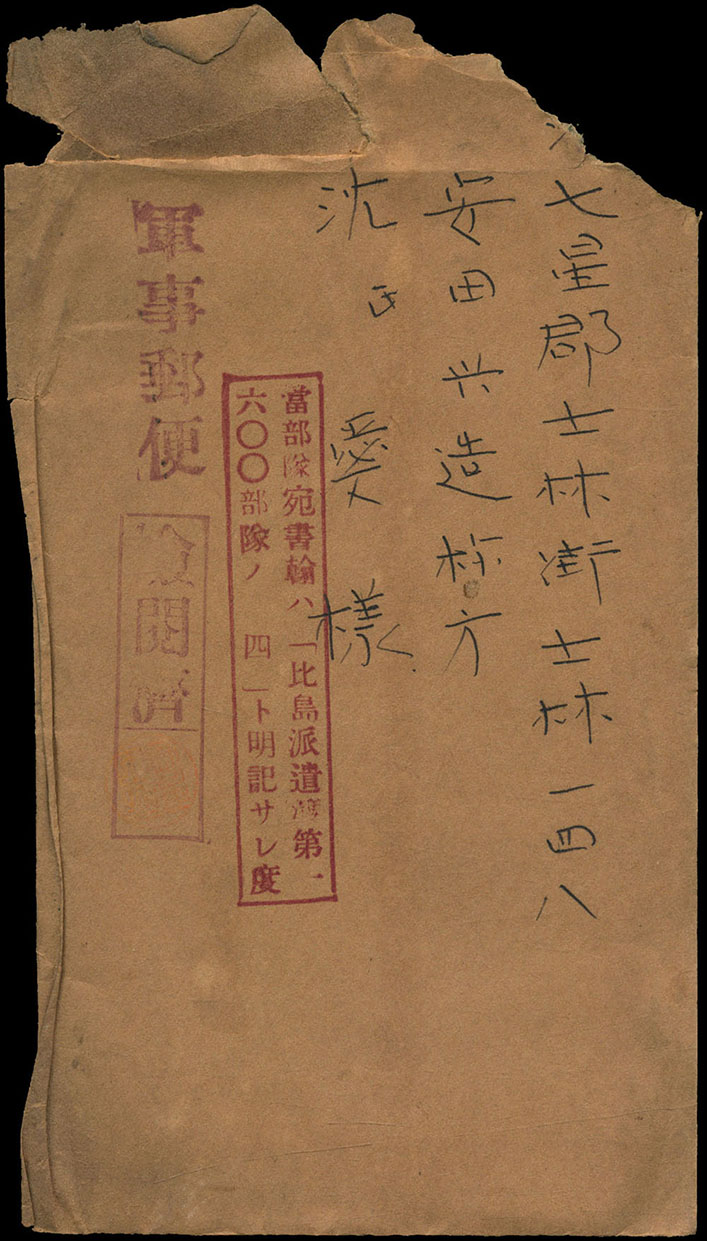 七星郡士林街士林一四八
安田兴造様方
沈氏愛様
當部隊宛書翰ハ「比島派遣灣第一
六〇〇部隊ノ四」ト明記サレ度
軍事郵便
檢閲濟